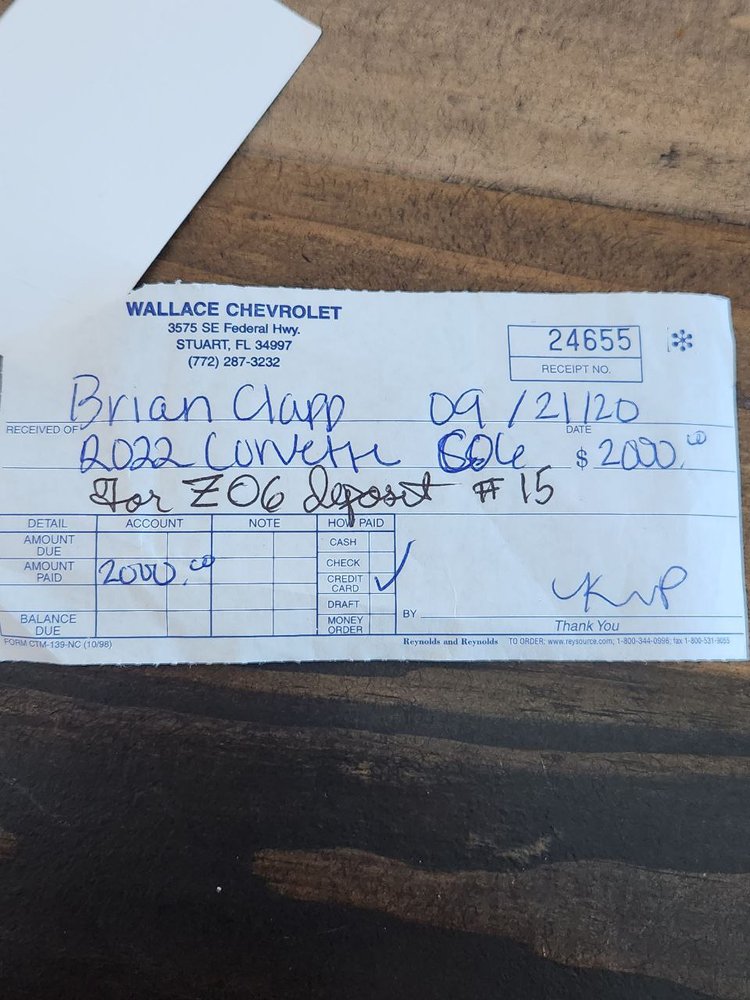 WALLACE CHEVROLET
3575 SE Federal Hwy.
STUART, FL 34997
(772) 287-3232
24655 *
RECEIPT NO.
RECEIVED OF Brian Clapp DATE 09/21/20
2022 Corvette $ 2000.00
For Z06 deposit # 15
DETAIL ACCOUNT NOTE HOW PAID
AMOUNT DUE CASH
CHECK
AMOUNT PAID 2000.00 CREDIT CARD ✓
DRAFT
BALANCE DUE MONEY ORDER
BY
Thank You
FORM CTM-139-NC (10/98) Reynolds and Reynolds TO ORDER: www.reysource.com; 1-800-344-0996; fax 1-800-531-9055